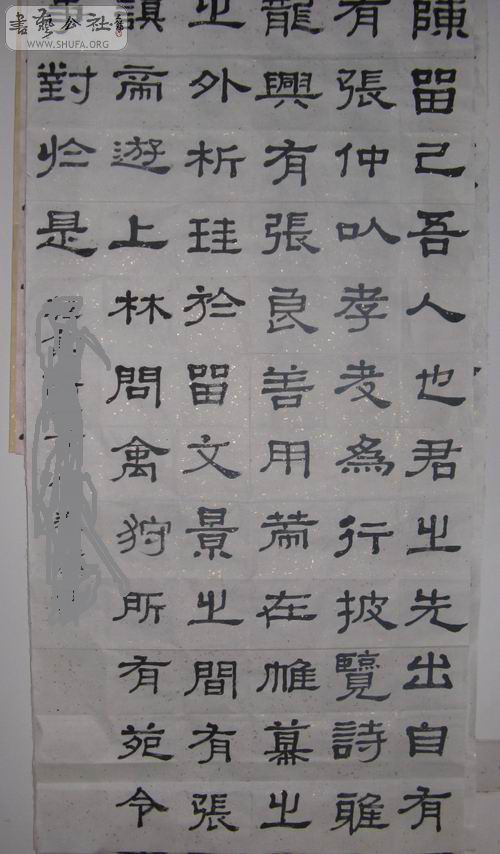 陳留己吾人也君之先出自有
有張仲以孝友為行披覽詩雅
龍興有張良善用在帷幕之
之外析珪於留文景之間有張
謨帝遊上林問禽狩所有苑令
對於是
書藝公社
WWW.SHUFA.ORG